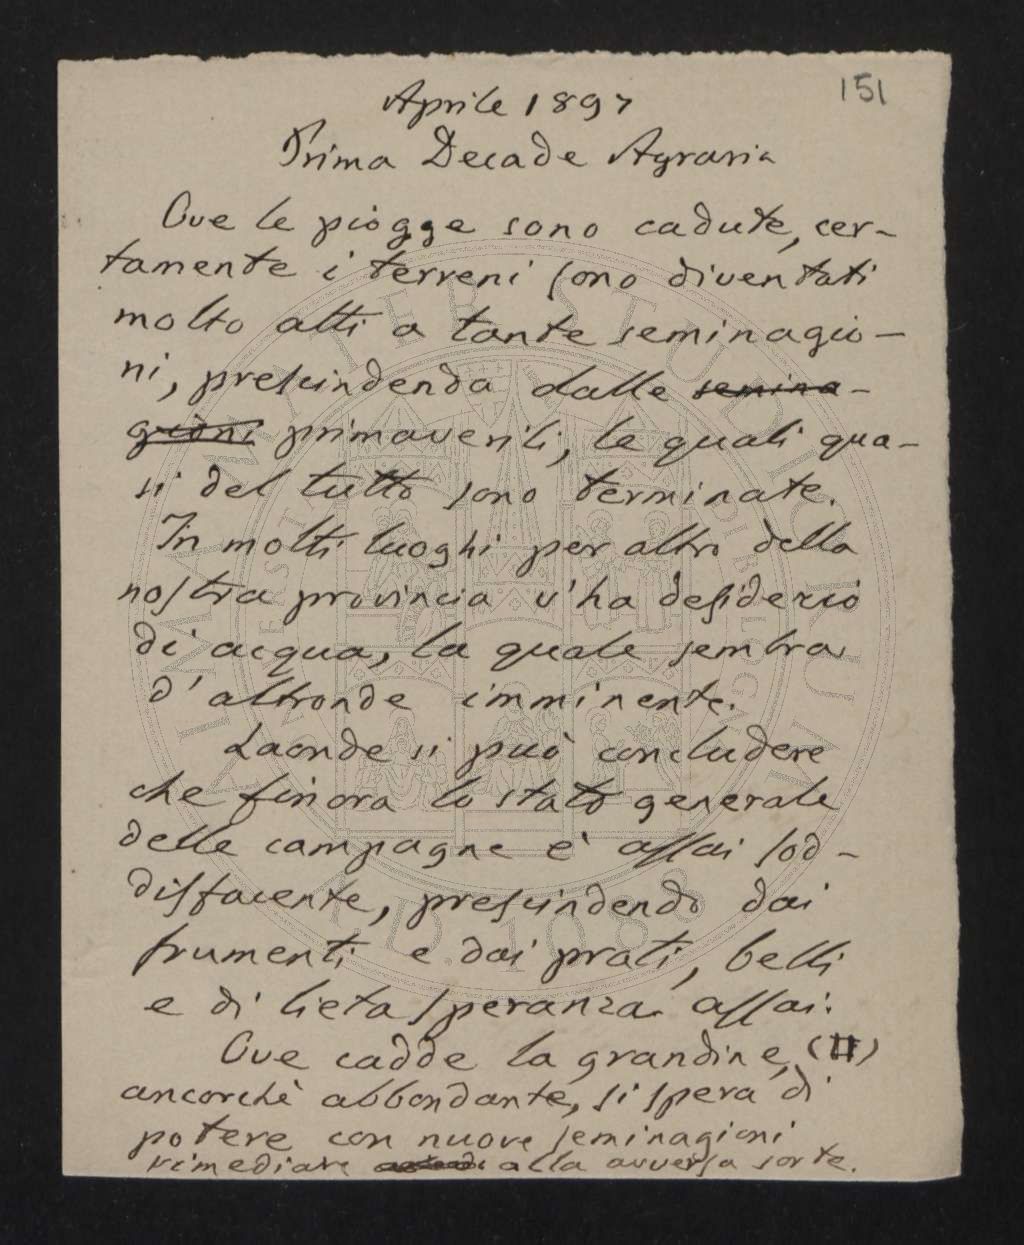 151
Aprile 1897
Prima Decade Agraria
Ove le piogge sono cadute, cer-
tamente i terreni sono diventati
molto atti a tante seminagio-
ni, prescindenda dalle semina-
gioni primaverili, le quali qua-
si del tutto sono terminate.
In molti luoghi per altro della
nostra provincia v'ha desiderio
di acqua, la quale sembra
d'altronde imminente.
Laonde si può concludere
che finora lo stato generale
delle campagne è assai sod-
disfacente, prescindendo dai
frumenti e dai prati, belli
e di lieta speranza assai.
Ove cadde la grandine, (#)
ancorchè abbondante, si spera di
potere con nuove seminagioni
rimediare alla avversa sorte.
ALMA MATER STUDIORUM
A.D. 1088